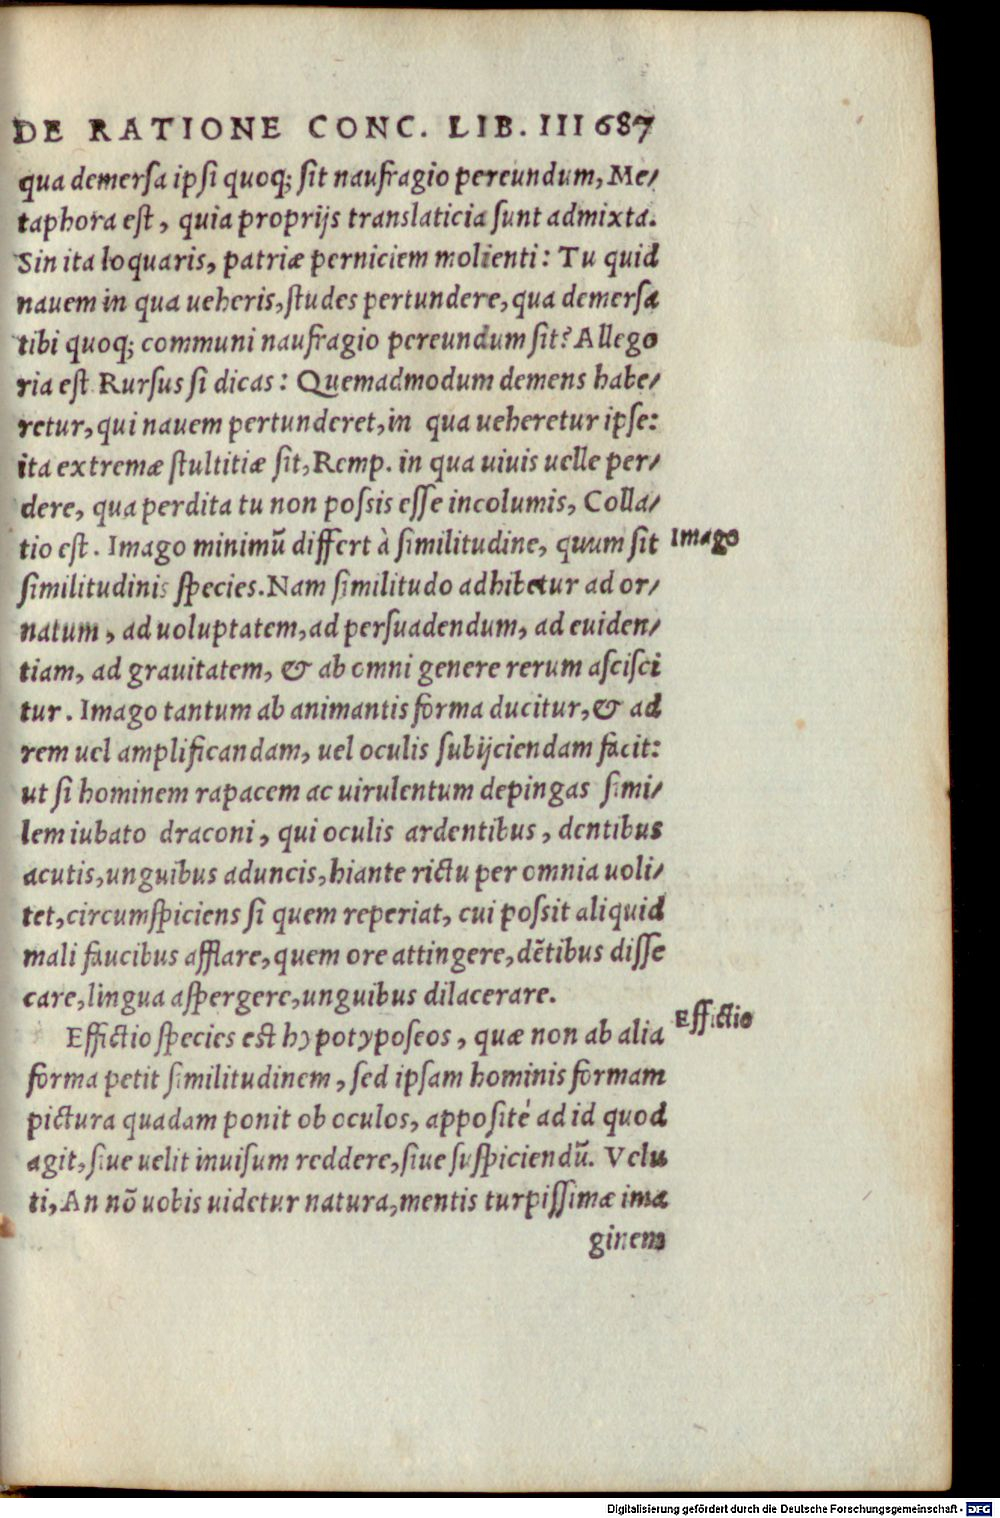 DE RATIONE CONC. LIB. III 687
qua demerſa ipſi quoq; ſit naufragio pereundum, Me/
taphora eſt, quia proprijs translaticia ſunt admixta.
Sin ita loquaris, patriæ perniciem molienti: Tu quid
nauem in qua ueheris, ſtudes pertundere, qua demerſa
tibi quoq; communi naufragio pereundum ſit? Allego
ria eſt Rurſus ſi dicas: Quemadmodum demens habe/
retur, qui nauem pertunderet, in qua ueheretur ipſe:
ita extremæ ſtultitiæ ſit, Remp. in qua uiuis uelle per/
dere, qua perdita tu non poſsis eſſe incolumis, Colla/
tio eſt. Imago minimũ differt à ſimilitudine, quum ſit
Imago
ſimilitudinis ſpecies. Nam ſimilitudo adhibetur ad or/
natum, ad uoluptatem, ad perſuadendum, ad euiden/
tiam, ad grauitatem, & ab omni genere rerum aſciſci
tur. Imago tantum ab animantis forma ducitur, & ad
rem uel amplificandam, uel oculis ſubijciendam facit:
ut ſi hominem rapacem ac uirulentum depingas ſimi/
lem iubato draconi, qui oculis ardentibus, dentibus
acutis, unguibus aduncis, hiante rictu per omnia uoli/
tet, circumſpiciens ſi quem reperiat, cui poſsit aliquid
mali faucibus afflare, quem ore attingere, dẽtibus diſſe
care, lingua aſpergere, unguibus dilacerare.
Effictio ſpecies est hypotypoſeos, quæ non ab alia
Effictio
forma petit ſimilitudinem, ſed ipſam hominis formam
pictura quadam ponit ob oculos, appoſité ad id quod
agit, ſiue uelit inuiſum reddere, ſiue ſuſpiciendũ. Velu
ti, An nõ uobis uidetur natura, mentis turpiſſimæ ima
ginem
Digitalisierung gefördert durch die Deutsche Forschungsgemeinschaft - DFG